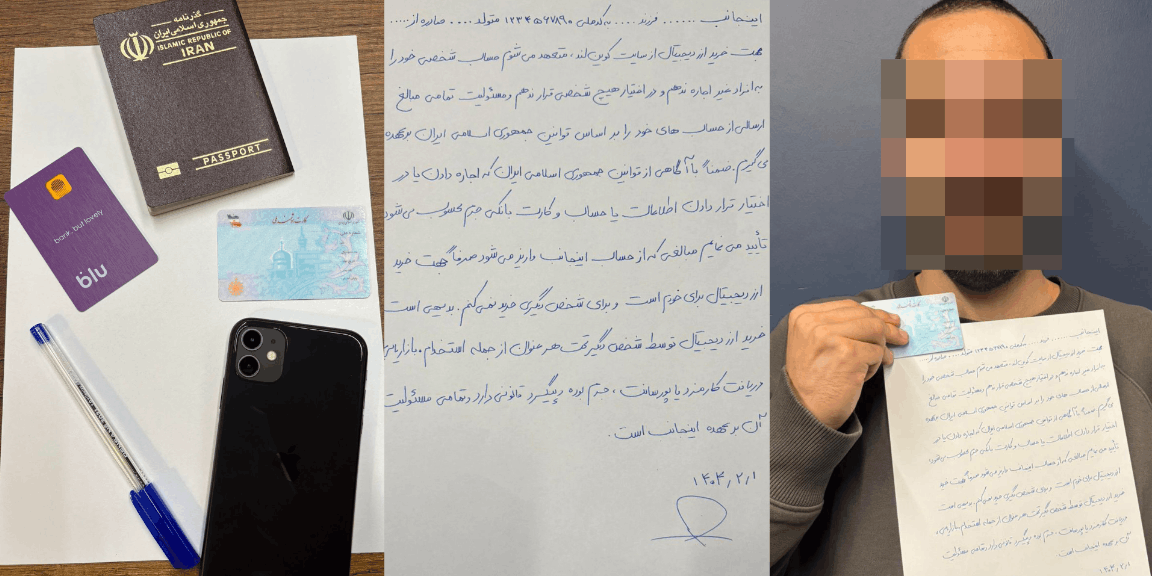 گذرنامه
جمهوری اسلامی ایران
ISLAMIC REPUBLIC OF
IRAN
PASSPORT
bank, but lovely
blu
کارت هوشمند ملی
اینجانب ...... فرزند .... به کدملی ۱۲۳۴۵۶۷۸۹۰ متولد .... صادره از .....
جهت خرید ارز دیجیتال از سایت کوین لند، متعهد می شوم حساب شخصی خود را
به افراد غیر اجاره ندهم و در اختیار هیچ شخصی قرار ندهم و مسئولیت تمامی مبالغ
ارسالی از حساب های خود را بر اساس قوانین جمهوری اسلامی ایران برعهده
می گیرم. ضمناً با آگاهی از قوانین جمهوری اسلامی ایران که اجاره دادن یا در
اختیار قرار دادن اطلاعات یا حساب و کارت بانکی جرم محسوب می شود
تأیید می نمایم مبالغی که از حساب اینجانب واریز می شود صرفاً جهت خرید
ارز دیجیتال برای خودم است و برای شخص دیگری خرید نمی کنم. بدیهی است
خرید ارز دیجیتال توسط شخص دیگر تحت هر عنوان از جمله استخدام، بازاریابی
دریافت کارمزد یا پورسانت، جرم بوده پیگرد قانونی دارد و تمامی مسئولیت
آن بر عهده اینجانب است.
۱۴۰۴/۲/۱